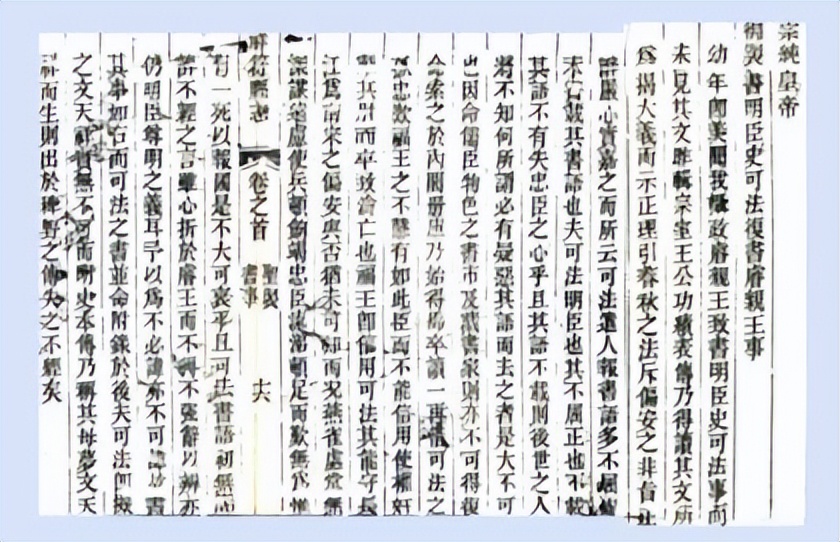 宗純皇帝
御製書明臣史可法復書睿親王事
幼年即羨聞我攝政睿親王致書明臣史可法事而
未見其文昨輯宗室王公功績表傳乃得讀其文所
為揭大義而示正理引春秋之法斥偏安之非旨正
辭嚴心實嘉之而所云可法遣人報書語多不屈
載其書語也夫可法明臣也其不屈正也不載
其語不有失忠臣之心乎且其語不載則後世之人
將不知何所謂必有疑惡其語而去之者是大不可
也因命儒臣物色之書市及藏書家則亦不可得復
命索之於內閣册庫乃始得焉卒讀一再惜可法之
孤忠歎福王之不慧有如此臣而不能信用使權奸
掣其肘而卒致淪亡也福王即信用可法其能守長
江為南宋之偏安與否猶未可知而況燕雀處堂無
深謀遠慮使兵頓餉竭忠臣流涕頓足而歎無能惟
符縣志 卷之首 聖製書事 十六
有一死以報國是不大可哀乎且可法書語初無詬
誶不經之言雖心折於睿王而不得不強辭以辨亦
仍明臣尊明之義耳予以為不必諱亦不可諱故書
其事如右而可法之書並命附錄於後夫可法即擬
之文天祥實無不可而明史本傳乃稱其母夢文天
祥而生則出於稗野之傳失之不經矣